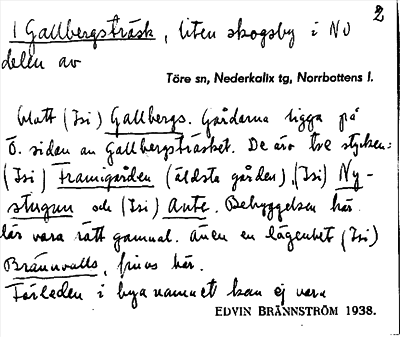 2
1 Gallbergsträsk, liten skogsby i NV
delen av
Töre sn, Nederkalix tg, Norrbottens l.
blott (Isi) Gallbergs. Gårdarna ligga på
Ö. sidan av Gallbergsträsket. De äro tre stycken:
(Isi) Framigården (äldsta gården), (Isi) Ny-
stugun och (Isi) Ante. Bebyggelsen här
lär vara rätt gammal. Även en lägenhet (Isi)
Brännvalls, finns här.
Förleden i bynamnet kan ej vara
EDVIN BRÄNNSTRÖM 1938.